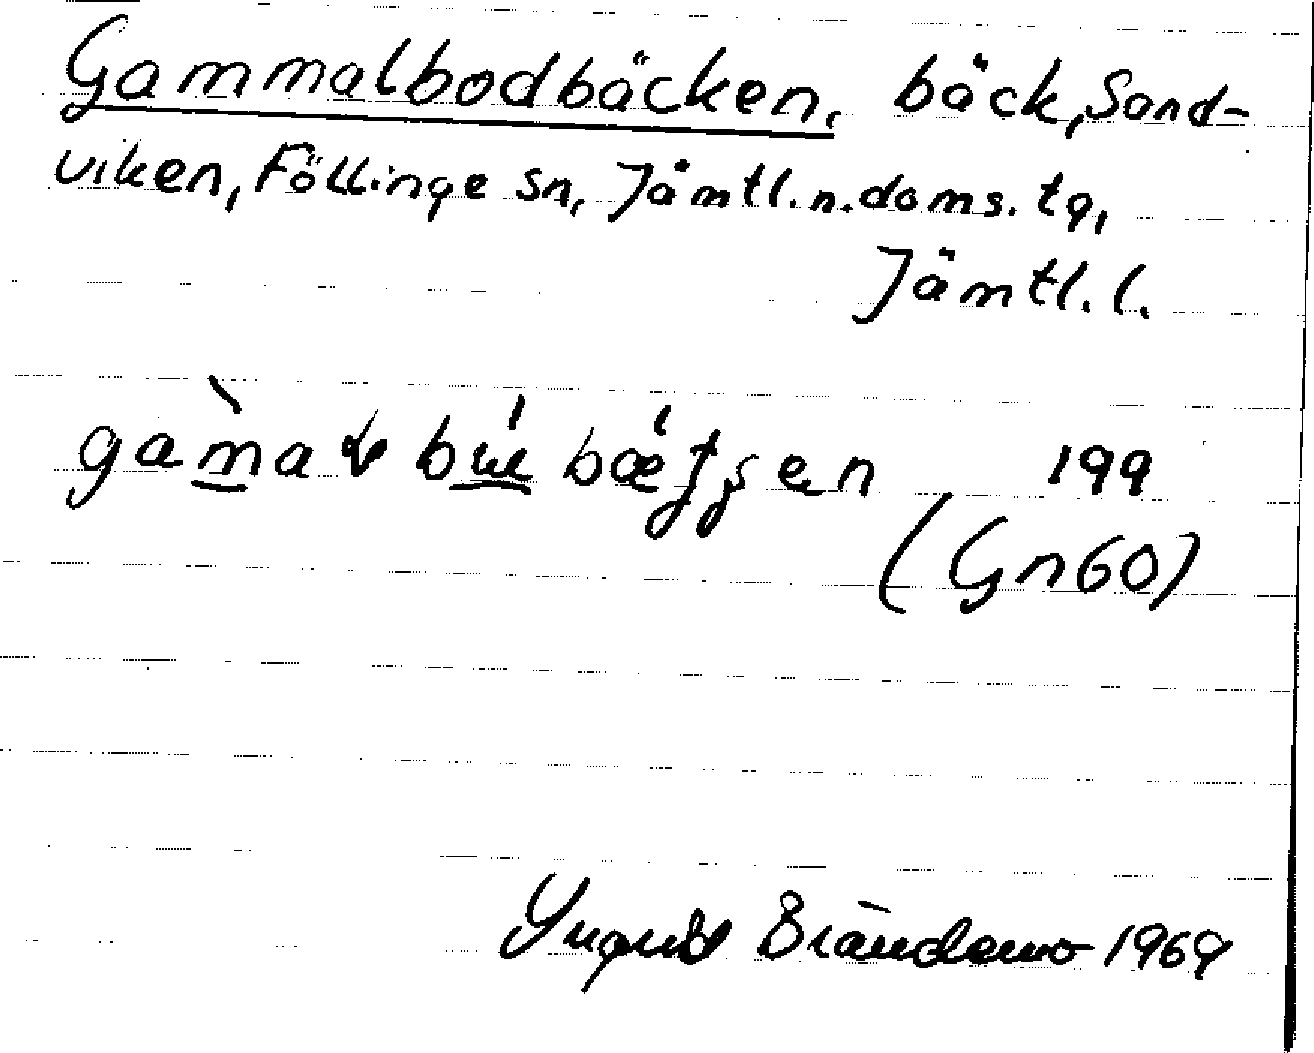 Gammalbodbäcken, bäck, Sand-
viken, Föllinge sn, Jämtl.n.doms.tg,
Jämtl.l.
199
(Gn60)
Yngvild Brändemo 1969